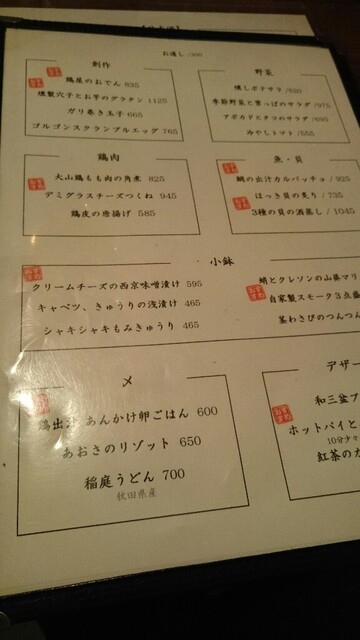 お通し /300
創作
鶏屋のおでん 835
燻製穴子とお芋のグラタン 1125
ガリ巻き玉子 665
ゴルゴンスクランブルエッグ 765
野菜
燻しポテサラ /620
季節野菜と葉っぱのサラダ /975
アボカドとタコのサラダ /695
冷やしトマト /555
鶏肉
大山鶏もも肉の角煮 825
デミグラスチーズつくね 945
鶏皮の唐揚げ 585
魚・貝
鯛の出汁カルパッチョ /925
ほっき貝の炙り /735
3種の貝の酒蒸し /1045
小鉢
クリームチーズの西京味噌漬け 595
キャベツ、きゅうりの浅漬け 465
シャキシャキもみきゅうり 465
蛸とクレソンの山葵マリ
自家製スモーク3点盛
茎わさびのつんつん
〆
鶏出汁 あんかけ卵ごはん 600
あおさのリゾット 650
稲庭うどん 700
秋田県産
デザー
和三盆プ
ホットパイと
10分少々
紅茶のガ